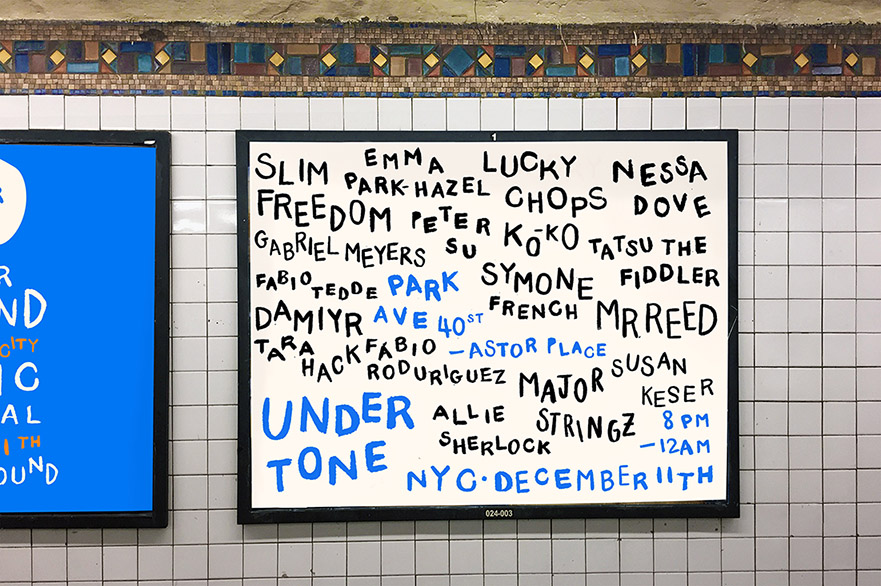 R
R
ND
CITY
IC
AL
1TH
OUND
1
SLIM FREEDOM
EMMA PARK-HAZEL
LUCKY CHOPS
NESSA DOVE
GABRIEL MEYERS
PETER SU
KŌ-KO
TATSU THE FIDDLER
FABIO TEDDE
PARK AVE 40ST
SYMONE FRENCH
MR REED
DAMIYR
TARA HACK
FABIO RODURIGUEZ
- ASTOR PLACE
MAJOR STRINGZ
SUSAN KESER
UNDER TONE
ALLIE SHERLOCK
8 PM
-12AM
NYC·DECEMBER 11TH
024-003